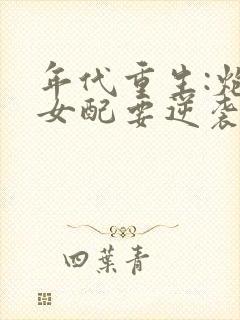 年代重生:炮
女配要逆袭
四葉青